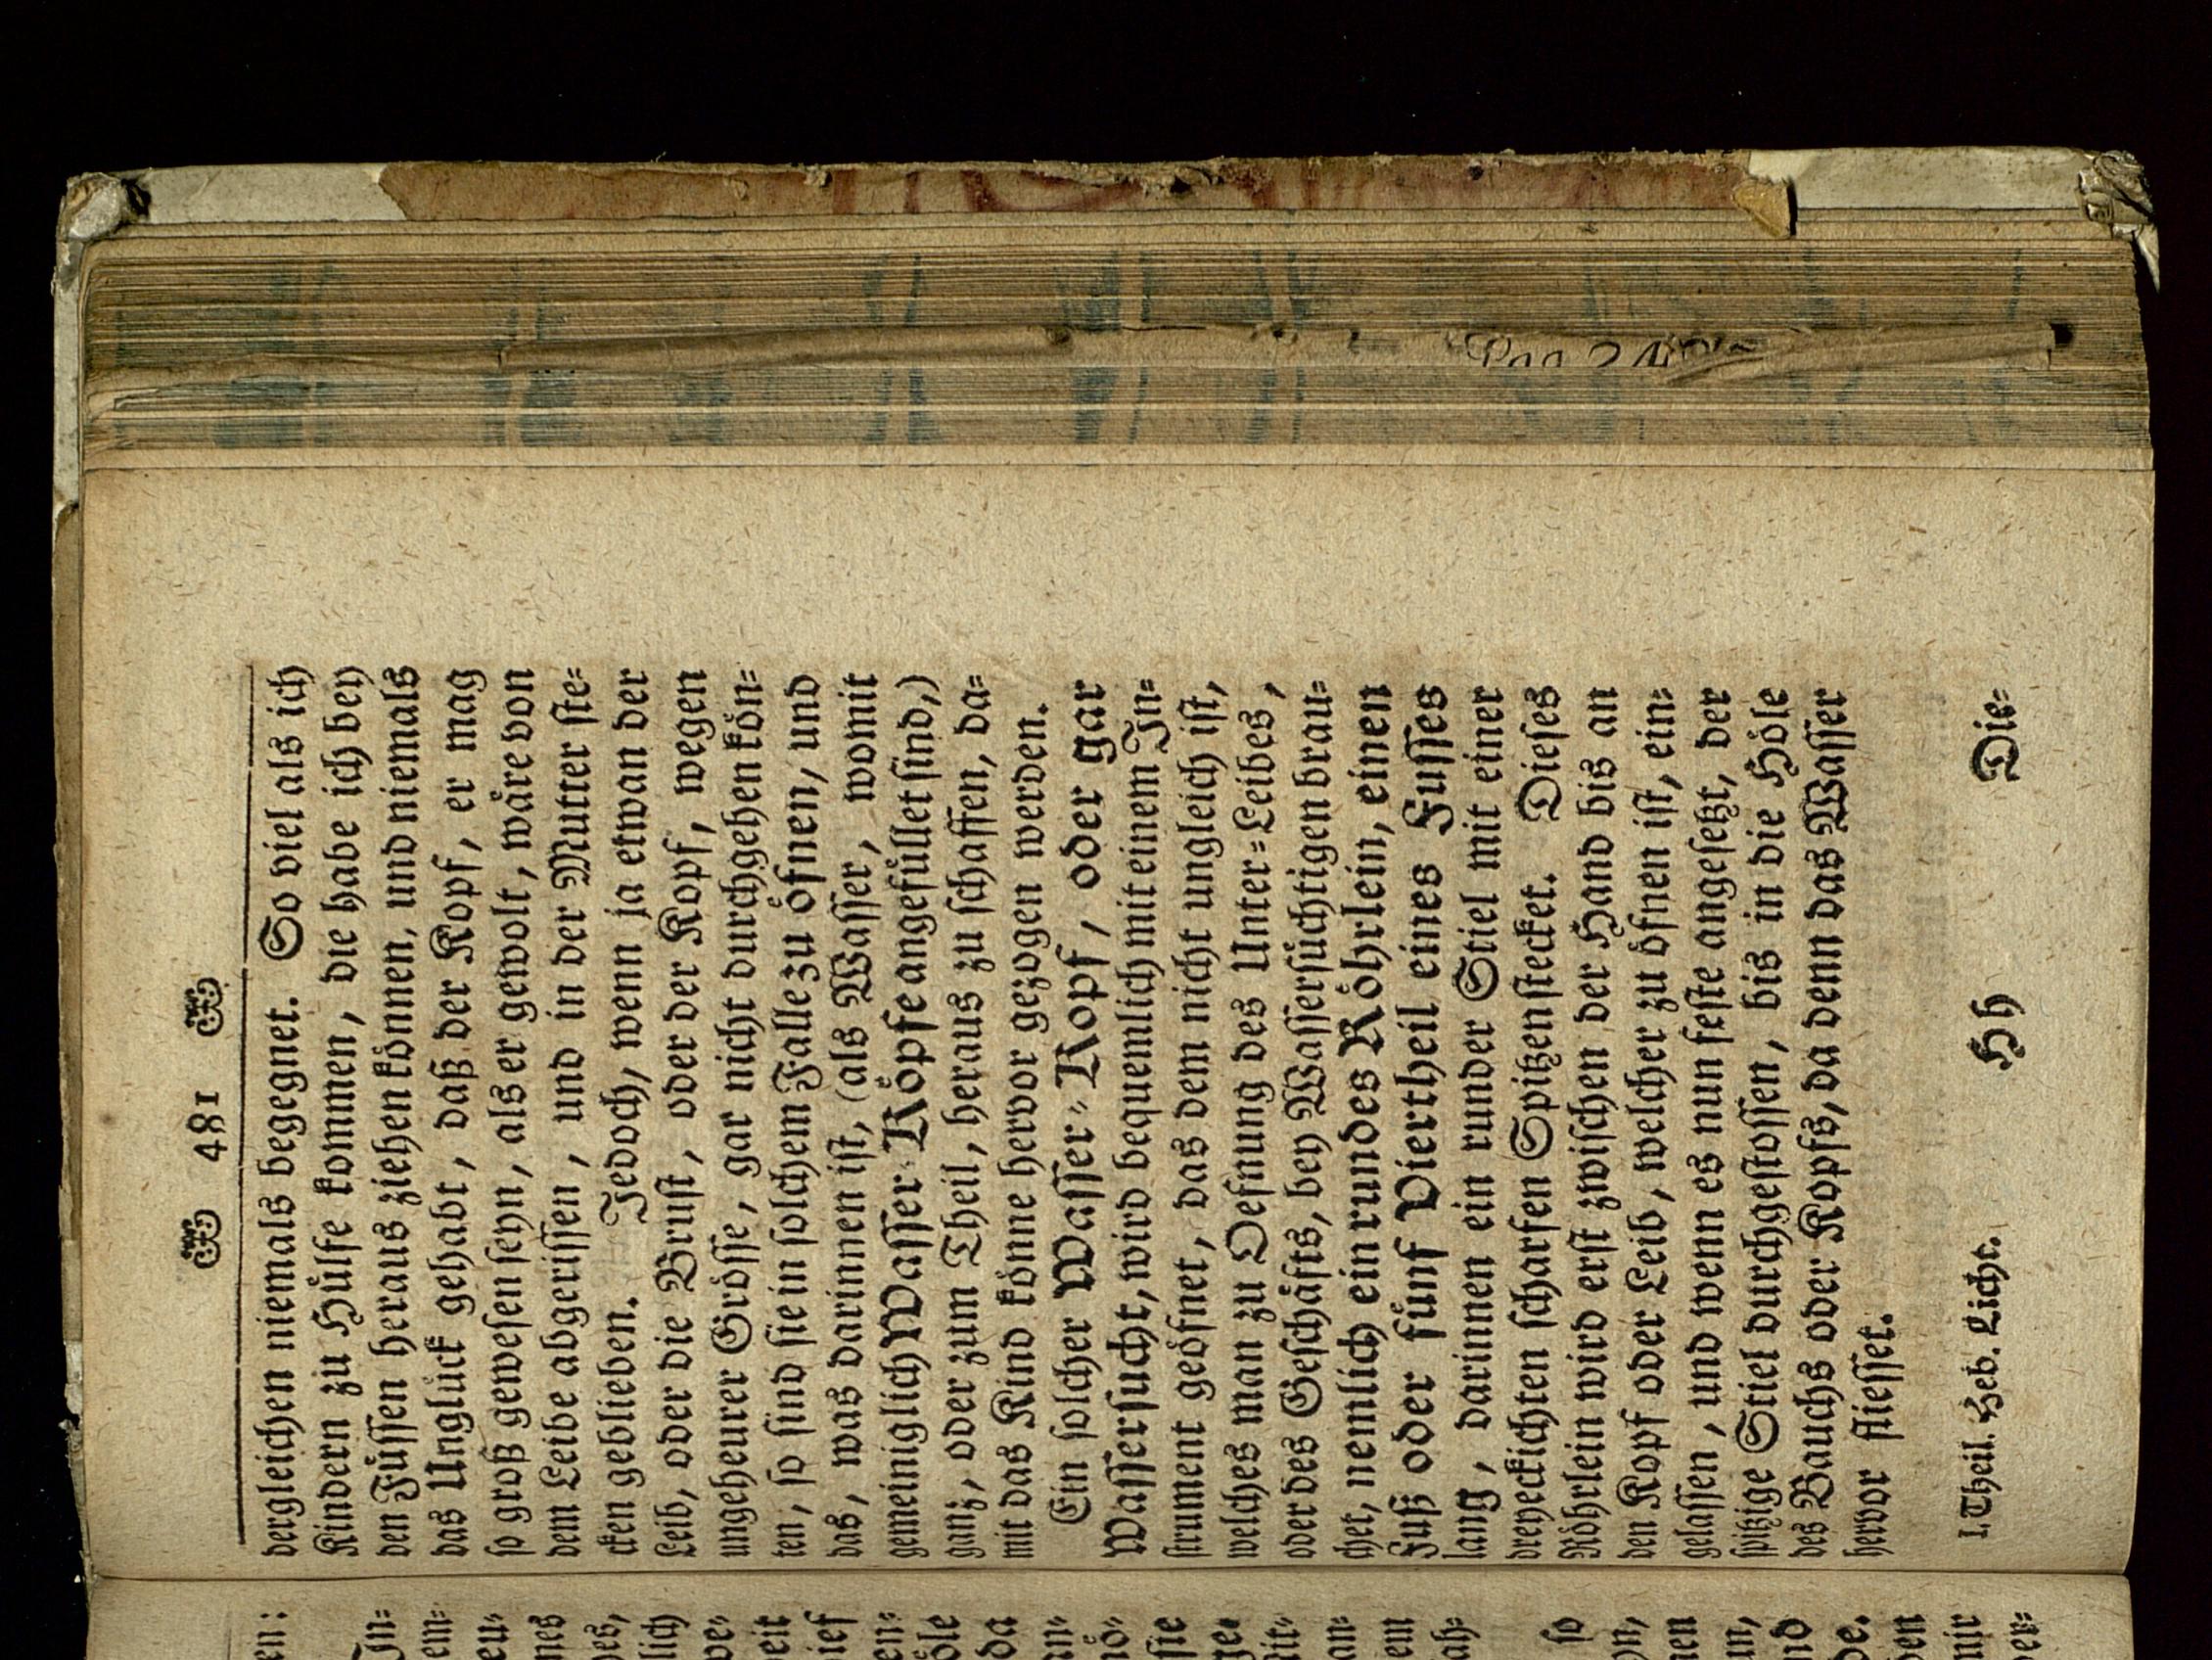 481
dergleichen niemals begegnet. So viel als ich
Kindern zu Hülfe kommen, die habe ich bey
den Füssen heraus ziehen können, und niemals
das Unglück gehabt, daß der Kopf, er mag
so groß gewesen seyn, als er gewolt, wäre von
dem Leibe abgerissen, und in der Mutter ste=
cken geblieben. Jedoch, wenn ja etwan der
Leib, oder die Brust, oder der Kopf, wegen
ungeheurer Grösse, gar nicht durchgehen kön=
ten, so sind sie in solchem Falle zu öfnen, und
das, was darinnen ist, (als Wasser, womit
gemeiniglich Wasser=Köpfe angefüllet sind,)
ganz, oder zum Theil, heraus zu schaffen, da=
mit das Kind könne hervor gezogen werden.
Ein solcher Wasser=Kopf, oder gar
Wassersucht, wird bequemlich mit einem In=
strument geöfnet, das dem nicht ungleich ist,
welches man zu Oefnung des Unter=Leibes,
oder des Geschäfts, bey Wassersüchtigen brau=
chet, nemlich ein rundes Röhrlein, einen
Fuß oder fünf Viertheil eines Fusses
lang, darinnen ein runder Stiel mit einer
dreyeckichten scharfen Spitzen stecket. Dieses
Röhrlein wird erst zwischen der Hand bis an
den Kopf oder Leib, welcher zu öfnen ist, ein=
gelassen, und wenn es nun feste angesetzt, der
spitzige Stiel durchgestossen, bis in die Höle
des Bauchs oder Kopfs, da denn das Wasser
hervor fliesset.
I. Theil. Heb. Licht. Hh Die=
en:
In=
em=
eu=
nes
des,
lich
we=
eit
ief
en=
öle
da
an=
nö=
sie
ge=
it=
an=
em
ah=
so
on,
nen
un,
nd
de.
den
mir
der=